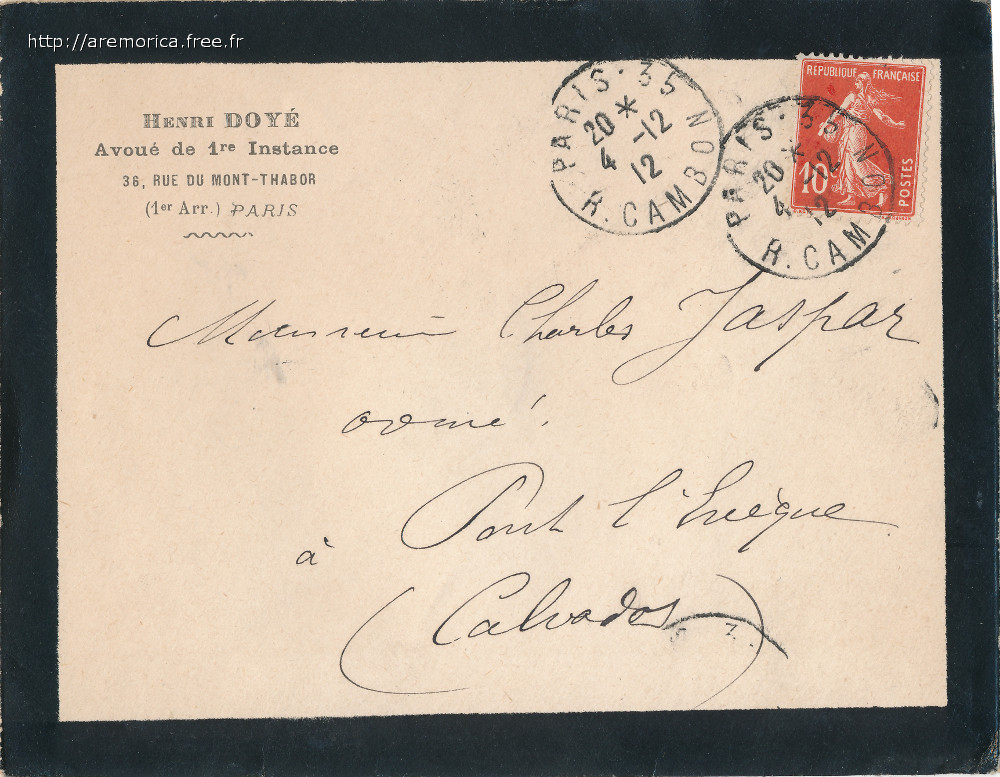 http://aremorica.free.fr
HENRI DOYÉ
Avoué de 1re Instance
36, RUE DU MONT-THABOR
(1er Arr.) PARIS
PARIS·35
20*
4 -12
12
R. CAMBON
REPUBLIQUE FRANÇAISE
10c
POSTES
PARIS·35
20*
4 -12
12
R. CAMBON
Monsieur Charles Jaspar
avoué.
à Pont l'Evêque
(Calvados)